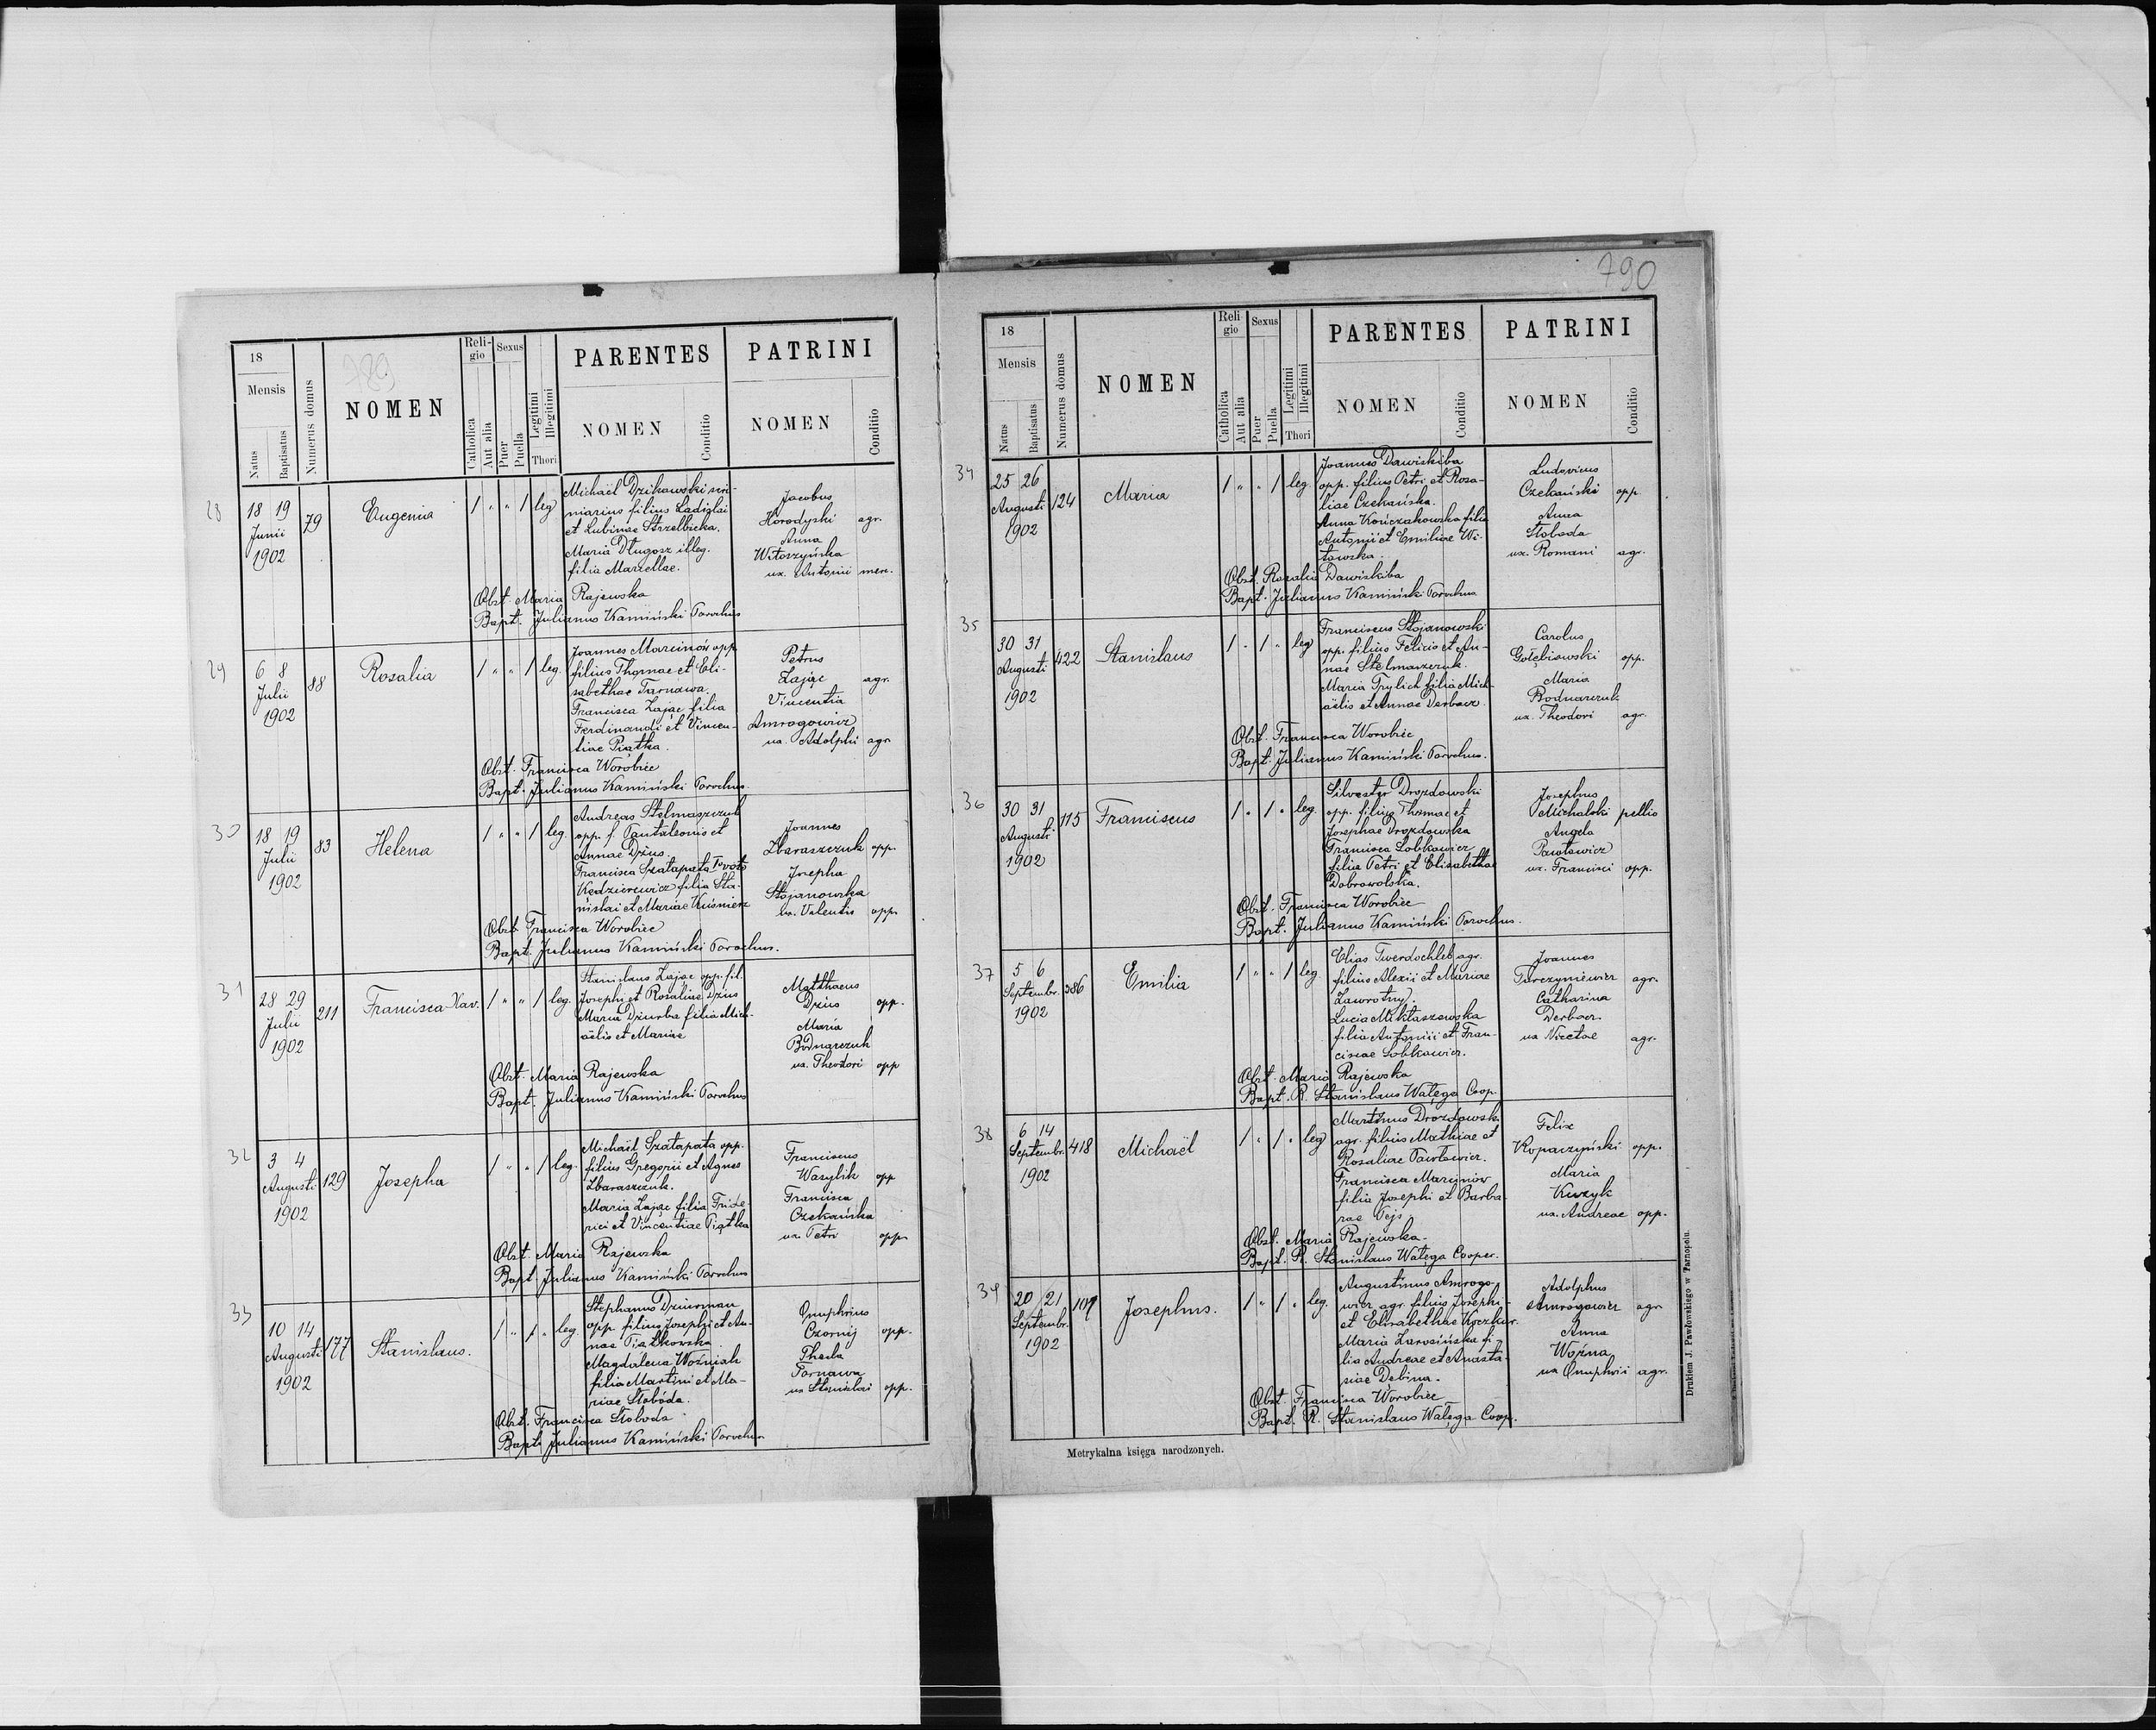 789
18
Mensis
Natus
Baptisatus
Numerus domus
NOMEN
Reli-
gio
Catholica
Aut alia
Sexus
Puer
Puella
Legitimi
Illegitimi
Thori
PARENTES
NOMEN
Conditio
PATRINI
NOMEN
Conditio
28
18 19
Junii
1902
79
Eugenia
1 " " 1 leg
Michaël Dzikowski
filius Ladislai
et Lubinae Strzelbicka.
Maria Długosz illeg.
filia Marcellae.
Jacobus
Horodyski agr.
Anna
Witoszyńska
ux. Antonii merc.
Obst. Maria Rajewska
Bapt. Julianus Kamiński Parochus
29
6 8
Julii
1902
88
Rosalia
1 " " 1 leg.
Joannes Marcinów opp.
filius Thomae et Eli-
sabethae Tarnawa.
Francisca Zając filia
Ferdinandi et Vincen-
tiae Piątka.
Petrus
Zając agr.
Vincentia
Amrogowicz
ux. Adolphi agr
Obst. Francisca Worobiec
Bapt. Julianus Kamiński Parochus
30
18 19
Julii
1902
83
Helena
1 " " 1 leg.
Andreas Stelmaszczuk
opp. f. Pantaleonis et
Annae Dżus.
Francisca Szatapata I voto
Kędzierewicz filia Sta-
nislai et Mariae Kuśnierz
Joannes
Zbaraszczuk opp.
Josepha
Stojanowska
ux. Valentis opp.
Obst. Francisca Worobiec
Bapt. Julianus Kamiński Parochus.
31
28 29
Julii
1902
211
Francisca Xav.
1 " " 1 leg.
Stanislaus Zając opp. fil.
Josephi et Rosaliae Dżus
Maria Dziurba filia Mich-
aëlis et Mariae
Matthaeus
Dzius opp.
Maria
Bodnarczuk
ux. Theodori opp
Obst. Maria Rajewska
Bapt. Julianus Kamiński Parochus
32
3 4
Augusti
1902
129
Josepha
1 " " 1 leg.
Michaël Szatapata opp.
filius Gregorii et Agnes
Zbaraszczuk.
Maria Zając filia Fride-
rici et Vincentiae Piątka
Franciscus
Wasylik opp
Francisca
Czekańska
ux. Petri opp
Obst. Maria Rajewska
Bapt. Julianus Kamiński Parochus
33
10 14
Augusti
1902
177
Stanislaus.
1 " 1 " leg.
Stephanus Dziurman
opp. filius Josephi et An-
nae Piatkowska
Magdalena Woźniak
filia Martini et Ma-
riae Słoboda.
Onuphrius
Czornij opp.
Thecla
Tarnawa
ux Stanislai opp.
Obst. Francisca Słoboda
Bapt. Julianus Kamiński Parochus
790
18
Mensis
Natus
Baptisatus
Numerus domus
NOMEN
Reli
gio
Catholica
Aut alia
Sexus
Puer
Puella
Legitimi
Illegitimi
Thori
PARENTES
NOMEN
Conditio
PATRINI
NOMEN
Conditio
34
25 26
Augusti
1902
124
Maria
1 " " 1 leg.
Joannes Dawiskiba
opp. filius Petri et Rosa-
liae Czekańska.
Anna Kończakowska filia
Antonii et Emiliae Wi-
towska.
Ludovicus
Czekański opp.
Anna
Słoboda
ux. Romani agr.
Obst. Rosalia Dawiskiba
Bapt. Julianus Kamiński Parochus
35
30 31
Augusti
1902
422
Stanislaus
1 " 1 " leg
Franciscus Stojanowski
opp. filius Felicis et An-
nae Stelmaszczuk.
Maria Trylich filia Mich-
aëlis et Annae Derbacz
Carolus
Gołębiowski opp.
Maria
Bodnarczuk
ux. Theodori agr.
Obst. Francisca Worobiec
Bapt. Julianus Kamiński Parochus.
36
30 31
Augusti
1902
115
Franciscus
1 " 1 " leg.
Silvester Drozdowski
opp. filius Thomae et
Josephae Drozdowska
Francisca Lobkowicz
filia Petri et Elisabethae
Dobrowolska.
Josephus
Michalski pellio
Angela
Pawłowicz
ux. Francisci opp.
Obst. Francisca Worobiec
Bapt. Julianus Kamiński Parochus.
37
5 6
Septembr.
1902
386
Emilia
1 " " 1 leg.
Elias Twerdochleb agr.
filius Alexii et Mariae
Zawrotny.
Lucia Miktaszewska
filia Antonii et Fran-
ciscae Lobkowicz.
Joannes
Turczyniewicz agr.
Catharina
Derbacz
ux Nicetae agr.
Obst. Maria Rajewska
Bapt. R. Stanislaus Wałęga Coop.
38
6 14
Septembr.
1902
418
Michaël
1 " 1 " leg
Martinus Drozdowski
agr. filius Mathiae et
Rosaliae Pawłowicz.
Francisca Marcinów
filia Josephi et Barba-
rae Pejs
Felix
Kopaczyński opp.
Maria
Kuczyk
ux. Andreae opp.
Obst. Maria Rajewska.
Bapt. R. Stanislaus Wałęga Cooper.
39
20 21
Septembr.
1902
109
Josephus.
1 " 1 " leg.
Augustinus Amrogo-
wicz agr. filius Josephi
et Elisabethae Koczkur.
Maria Zarosińska fi-
lia Andreae et Anasta-
siae Debina.
Adolphus
Amrogowicz agr
Anna
Wojna
ux Onuphrii agr.
Obst. Francisca Worobiec
Bapt. R. Stanislaus Wałęga Coop.
Metrykalna księga narodzonych.
Drukiem J. Pawłowskiego w Tarnopolu.